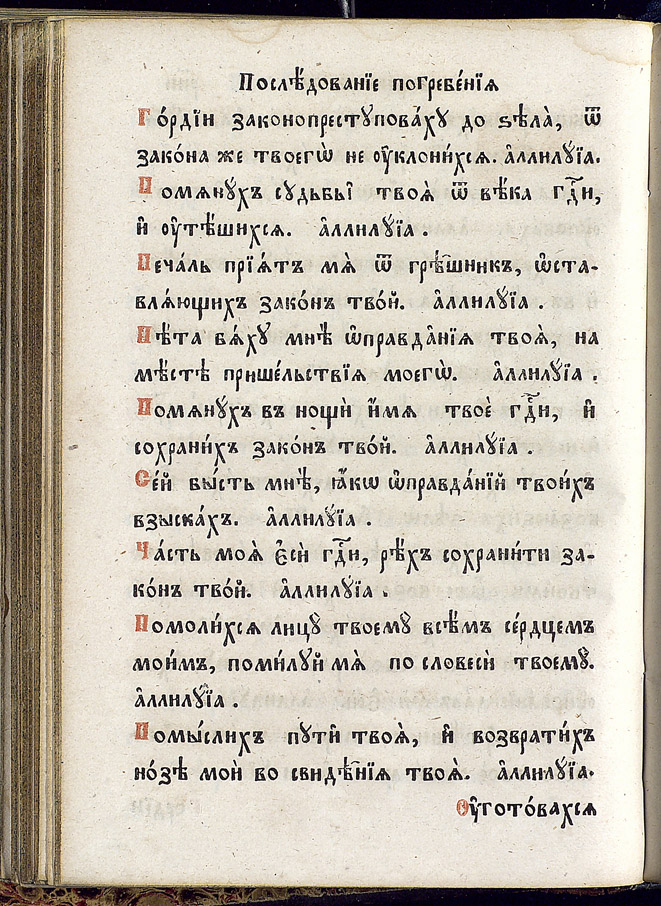 Послѣ́дованїе погребе́нїѧ
Го́рдїи законопрестꙋпова́хꙋ до ѕѣла̀, ѿ
зако́на же твоегѡ̀ не ᲂу҆клони́хсѧ. а҆ллилꙋ́їа.
Помѧнꙋ́хъ сꙋдьбы̑ твоѧ̑ ѿ вѣ́ка гдⷭ҇и,
и҆ ᲂу҆тѣ́шихсѧ. а҆ллилꙋ́їа .
Печа́ль прїѧ́тъ мѧ̀ ѿ грѣ́шникъ, ѡ҆ста-
влѧ́ющихъ зако́нъ тво́й. а҆ллилꙋ́їа .
Пѣ́та бѧ́хꙋ мнѣ̀ ѡ҆правда̑нїѧ твоѧ̑, на
мѣ́стѣ прише́льствїѧ моегѡ̀. а҆ллилꙋ́їа .
Помѧнꙋ́хъ въ нощѝ и҆́мѧ твоѐ гдⷭ҇и, и҆
сохрани́хъ зако́нъ тво́й. а҆ллилꙋ́їа .
Се́й бы́сть мнѣ̀, ꙗ҆́кѡ ѡ҆правда́нїй твои́хъ
взыска́хъ. а҆ллилꙋ́їа .
Ча́сть моѧ̀ є҆сѝ гдⷭ҇и, рѣ́хъ сохрани́ти за-
ко́нъ тво́й. а҆ллилꙋ́їа .
Помоли́хсѧ лицꙋ̀ твоемꙋ̀ всѣ́мъ се́рдцемъ
мои́мъ, поми́лꙋй мѧ̀ по словесѝ твоемꙋ̀.
а҆ллилꙋ́їа .
Помы́слихъ пꙋти̑ твоѧ̑, и҆ возврати́хъ
но́зѣ моѝ во свидѣ̑нїѧ твоѧ̑. а҆ллилꙋ́їа.
Оу҆гото́вахсѧ